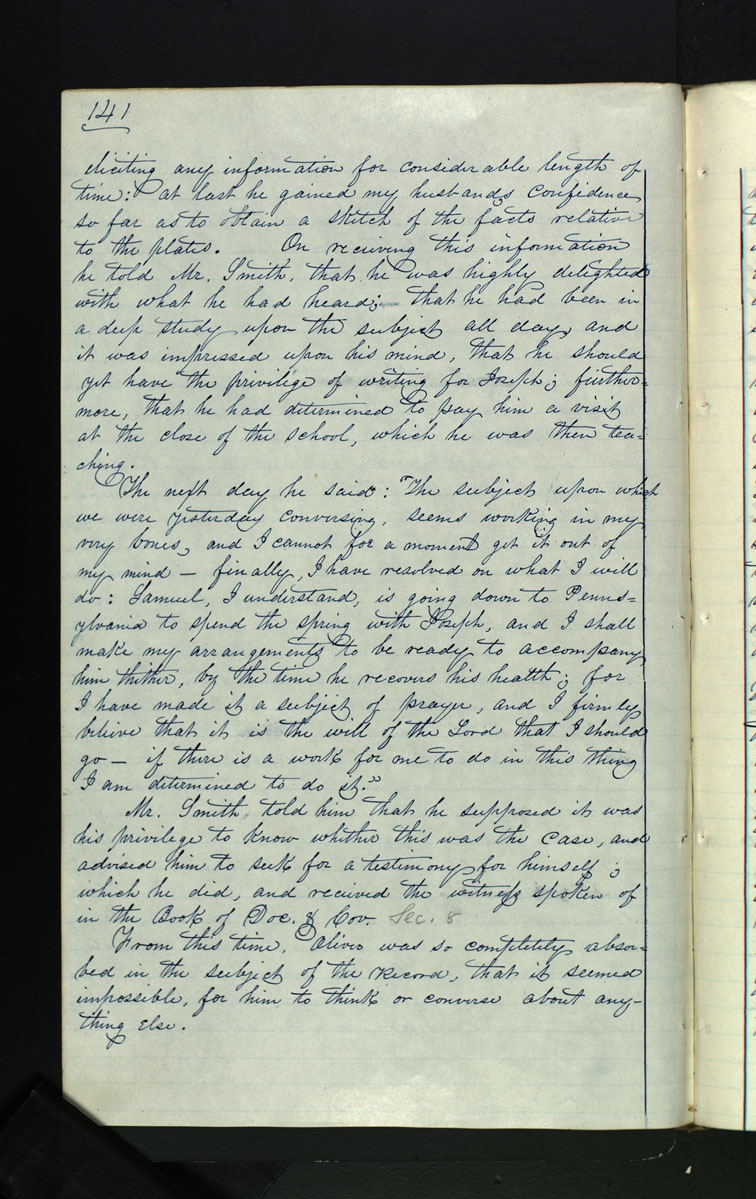 141
eliciting any information for considerable length of
time: at last he gained my husbands confidence
so far as to obtain a sketch of the facts relative
to the plates. On receiving this information
he told Mr. Smith, that he was highly delighted
with what he had heard; that he had been in
a deep study upon the subject all day, and
it was impressed upon his mind, that he should
yet have the privilege of writing for Joseph; further-
more, that he had determined to pay him a visit
at the close of the school, which he was then tea-
ching.
The next day he said: "The subject upon which
we were yesterday conversing, seems working in my
very bones, and I cannot for a moment get it out of
my mind — finally, I have resolved on what I will
do: Samuel, I understand, is going down to Penns=
ylvania to spend the spring with Joseph, and I shall
make my arrangements to be ready to accompany
him thither, by the time he recovers his health; for
I have made it a subject of prayer, and I firmly
believe that it is the will of the Lord that I should
go — if there is a work for me to do in this thing
I am determined to do it."
Mr. Smith, told him that he supposed it was
his privilege to know whether this was the case, and
advised him to seek for a testimony for himself;
which he did, and received the witness spoken of
in the Book of Doc. & Cov. Sec. 8
From this time, Oliver was so completely absor-
bed in the subject of the Record, that it seemed
impossible, for him to think or converse about any-
thing else.